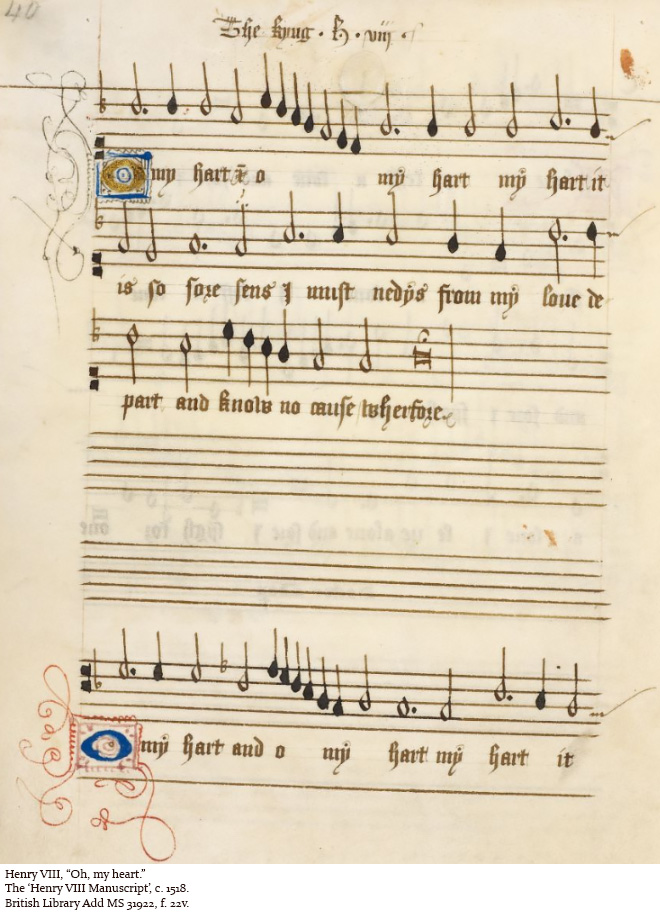 40
The kyng . h . viij .
O my hart & o my hart my hart it
is so sore sens I must nedys from my loue de
part and know no cause wherfore.
O my hart and o my hart my hart it
Henry VIII, “Oh, my heart.”
The ‘Henry VIII Manuscript’, c. 1518.
British Library Add MS 31922, f. 22v.